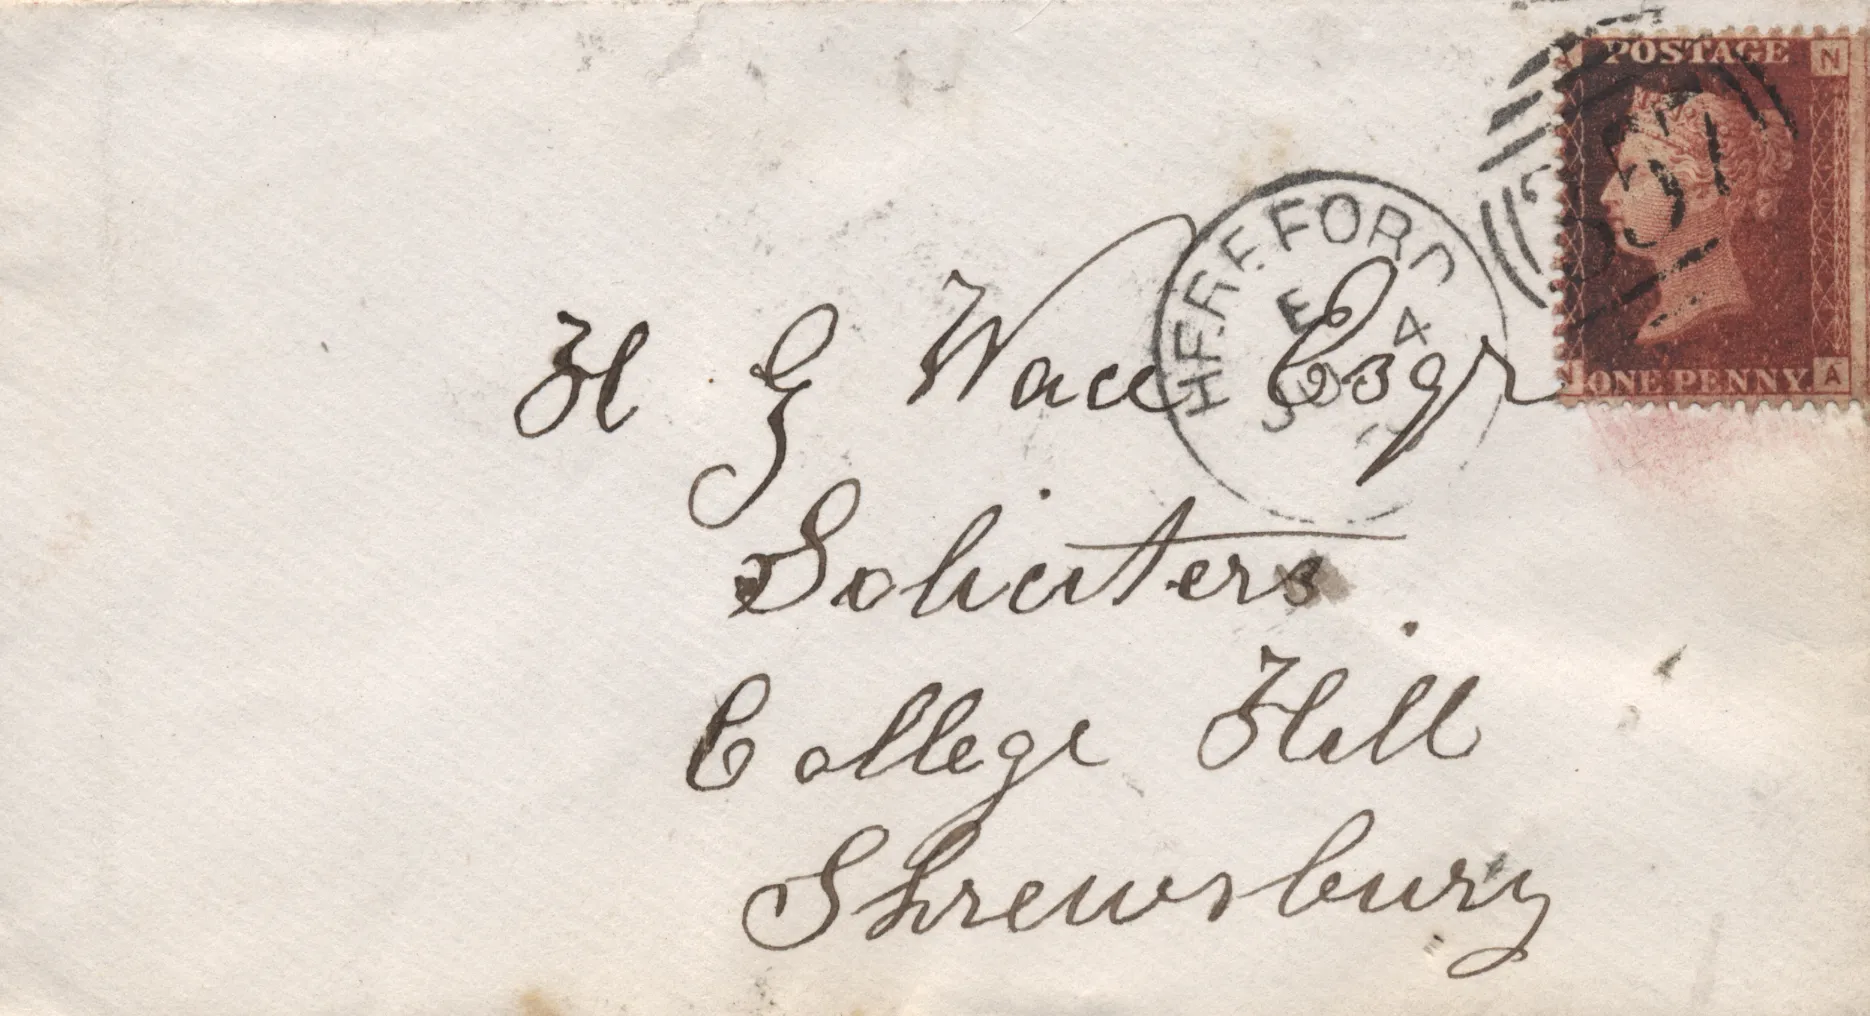 POSTAGE N
ONE PENNY. A
HEREFORD
E 4
H G Wace Esqr
Soliciters
College Hill
Shrewsbury